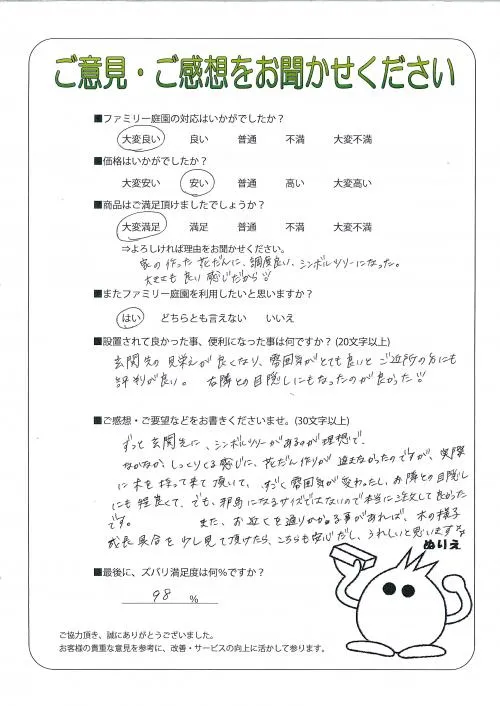 ご意見・ご感想をお聞かせください
■ファミリー庭園の対応はいかがでしたか？
大変良い 良い 普通 不満 大変不満
■価格はいかがでしたか？
大変安い 安い 普通 高い 大変高い
■商品はご満足頂けましたでしょうか？
大変満足 満足 普通 不満 大変不満
⇒よろしければ理由をお聞かせください。
家の作った花だんに、調度良い、シンボルツリーになった。
大きさも良い感じだから
■またファミリー庭園を利用したいと思いますか？
はい どちらとも言えない いいえ
■設置されて良かった事、便利になった事は何ですか？(20文字以上)
玄関先の見栄えが良くなり、雰囲気がとても良いとご近所の方にも
評判が良い。 右隣との目隠しにもなったのが良かった
■ご感想・ご要望などをお書きくださいませ。(30文字以上)
ずっと玄関先に、シンボルツリーがあるのが理想で、
なかなか、しっくりくる感じに、花だん作りが進まなかったのですが、実際
に木を持って来て頂いて、すごく雰囲気が変わったし、お隣との目隠し
にも程良くて、でも、邪魔になるサイズではないので本当に注文して良かった
です。 また、お近くを通りかかる事があれば、木の様子
成長具合を少し見て頂けたら、こちらも安心だし、うれしいと思います
ぬりえ
■最後に、ズバリ満足度は何％ですか？
98 %
ご協力頂き、誠にありがとうございました。
お客様の貴重な意見を参考に、改善・サービスの向上に活かして参ります。